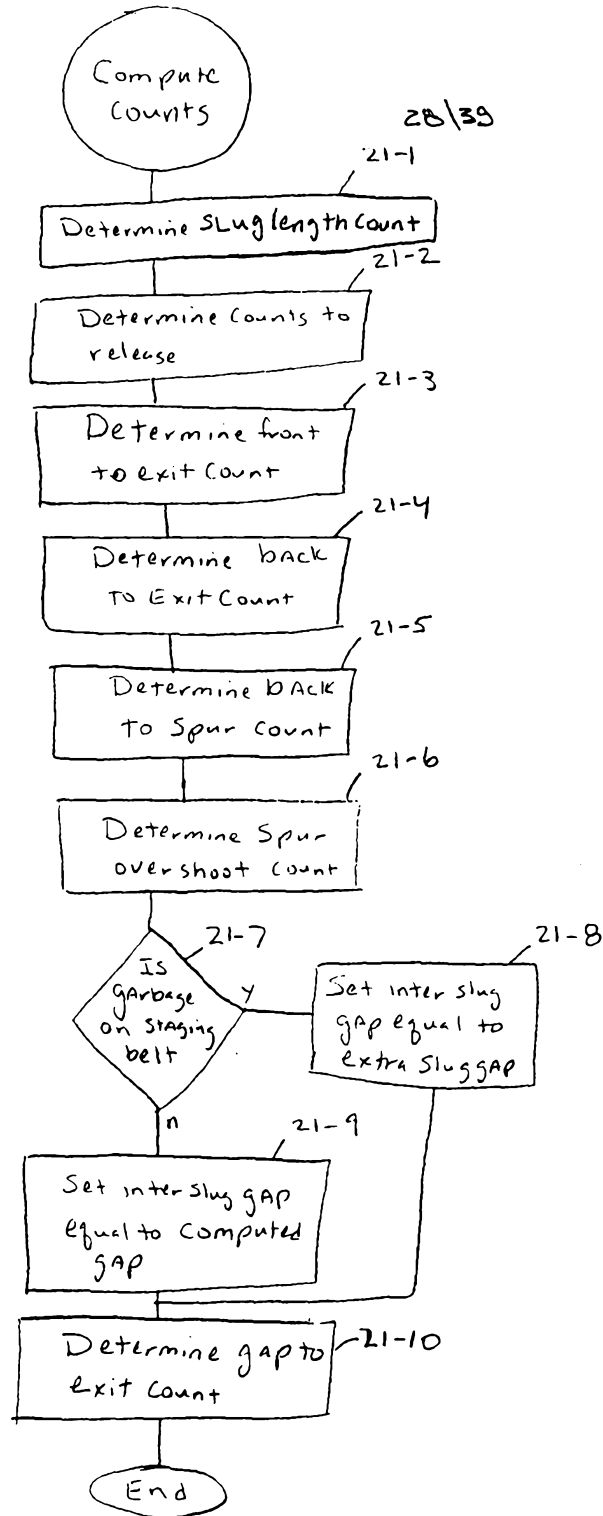 Compute
Counts
28\39
21-1
Determine SLuglength Count
21-2
Determine Counts to
release
21-3
Determine front
to exit Count
21-4
Determine bACK
TO Exit Count
21-5
Determine bACK
To Spur Count
21-6
Determine Spur
overshoot Count
21-7
IS
gArbage
on STAging
belt
y
21-8
Set inter slug
gAp equal to
extra SluggAp
n
21-9
Set inter slug gAp
equal to Computed
gAp
Determine gap to
exit Count
21-10
End